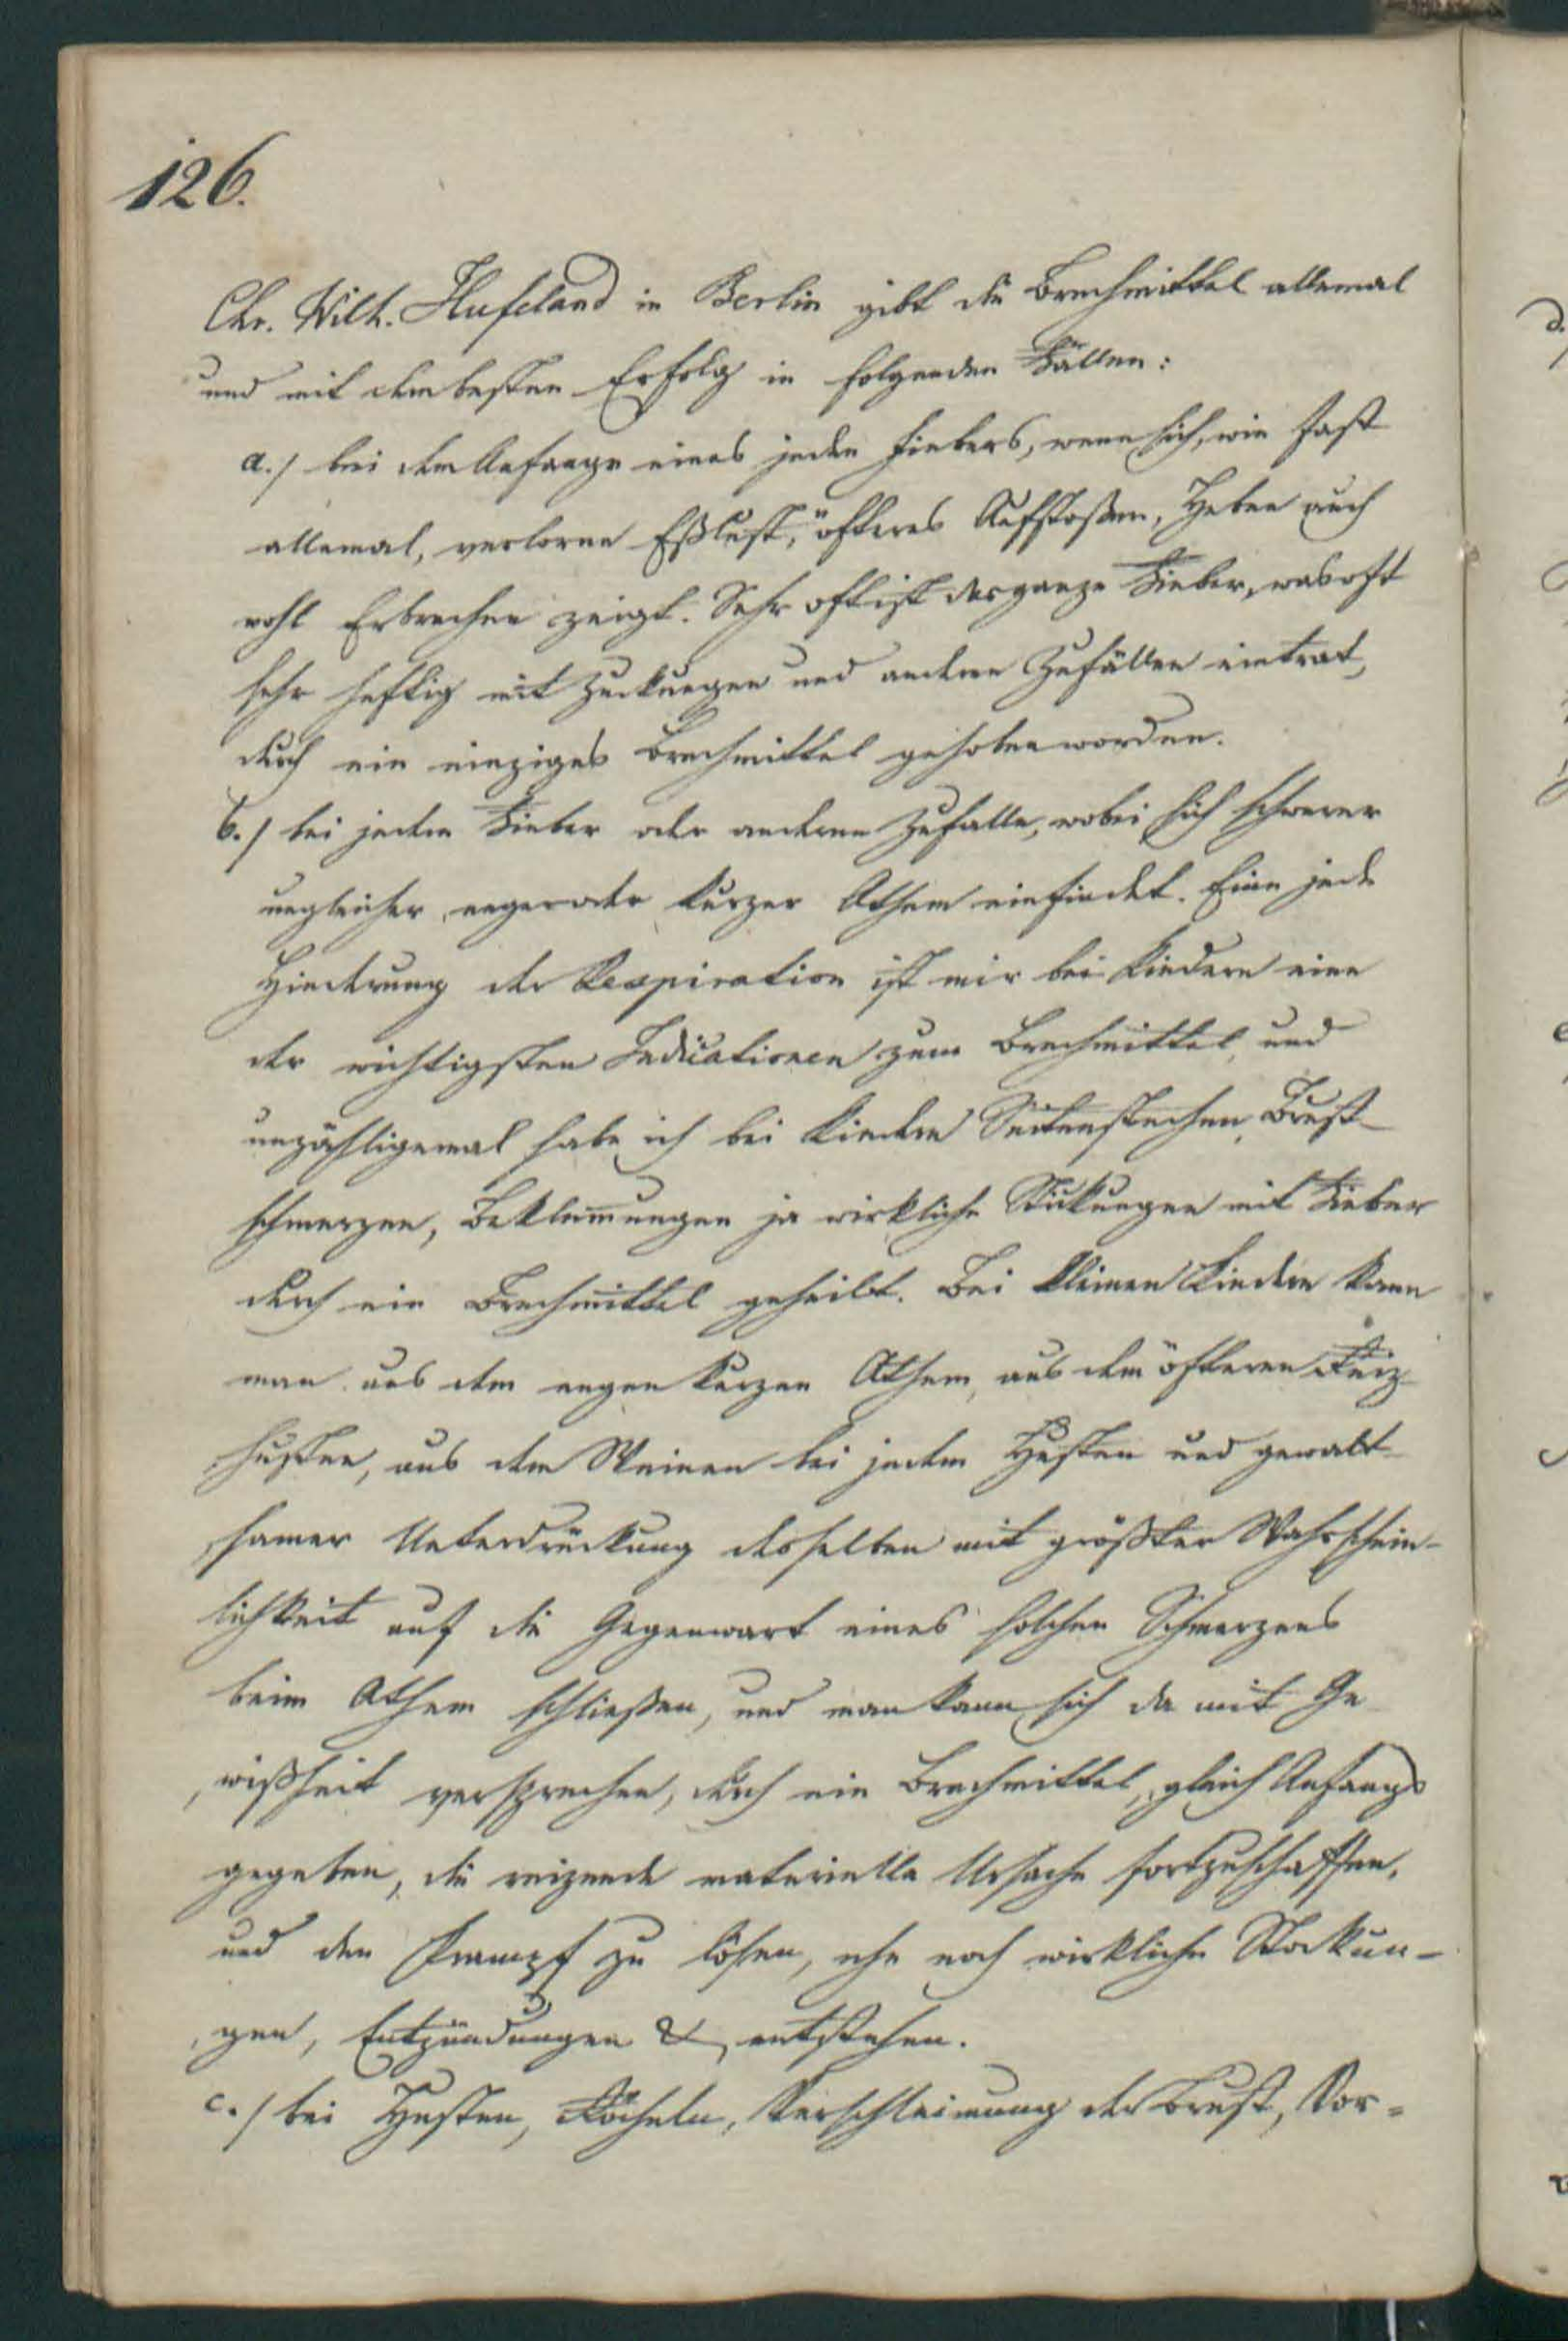 126.
Chr. Wilh. Hufeland in Berlin gibt die Brechmittel allemal
und mit dem besten Erfolg in folgenden Fällen:
a./ bei dem Anfange eines jeden Fiebers, wenn sich, wie fast
allemal, verlorne Eßlust, öfteres Aufstoßen, Heben auch
wohl Erbrechen zeigt. Sehr oft ist das ganze Fieber, was oft
sehr heftig mit Zuckungen und andern Zufällen eintrat,
durch ein einziges Brechmittel gehoben worden.
b./ bei jedem Fieber oder anderen Zufalle, wobei sich schwerer
ungleicher, enger oder kurzer Athem einfindet. Eine jede
Hinderung der Respiration ist mir bei Kindern eine
der wichtigsten Indicationen zum Brechmittel, und
unzähligemal habe ich bei Kindern Seitenstechen, Brust-
schmerzen, Beklem̅ungen ja wirkliche Stickungen mit Fieber
durch ein Brechmittel geheilt. Bei kleinen Kindern kann
man aus dem engen kurzen Athem, aus dem öfteren Reiz-
husten, aus dem Weinen bei jedem Husten und gewalt-
samer Unterdrückung desselben mit größter Wahrschein-
lichkeit auf die Gegenwart eines solchen Schmerzens
beim Athem schließen, und man kann sich da mit Ge
wißheit versprechen, durch ein Brechmittel, gleich Anfangs
gegeben, die reizende materielle Ursache fortzuschaffen,
und den Krampf zu lösen, ehe noch wirkliche Stockun-
gen, Entzündungen & entstehen.
c./ bei Husten, Röcheln, Verschleimung der Brust, Vor-